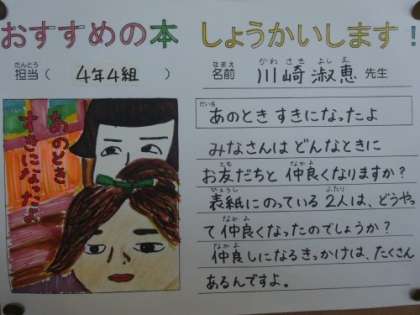 おすすめの本 しょうかいします!
担当 (4年4組) 名前 川崎 淑恵 先生
あのとき
すきになったよ
だい
あのとき すきになったよ
みなさんは どんなときに
お友だちと 仲良くなりますか?
表紙にのっている 2人は、どうやっ
て仲良くなったのでしょうか?
仲良しになるきっかけは、たくさん
あるんですよ。